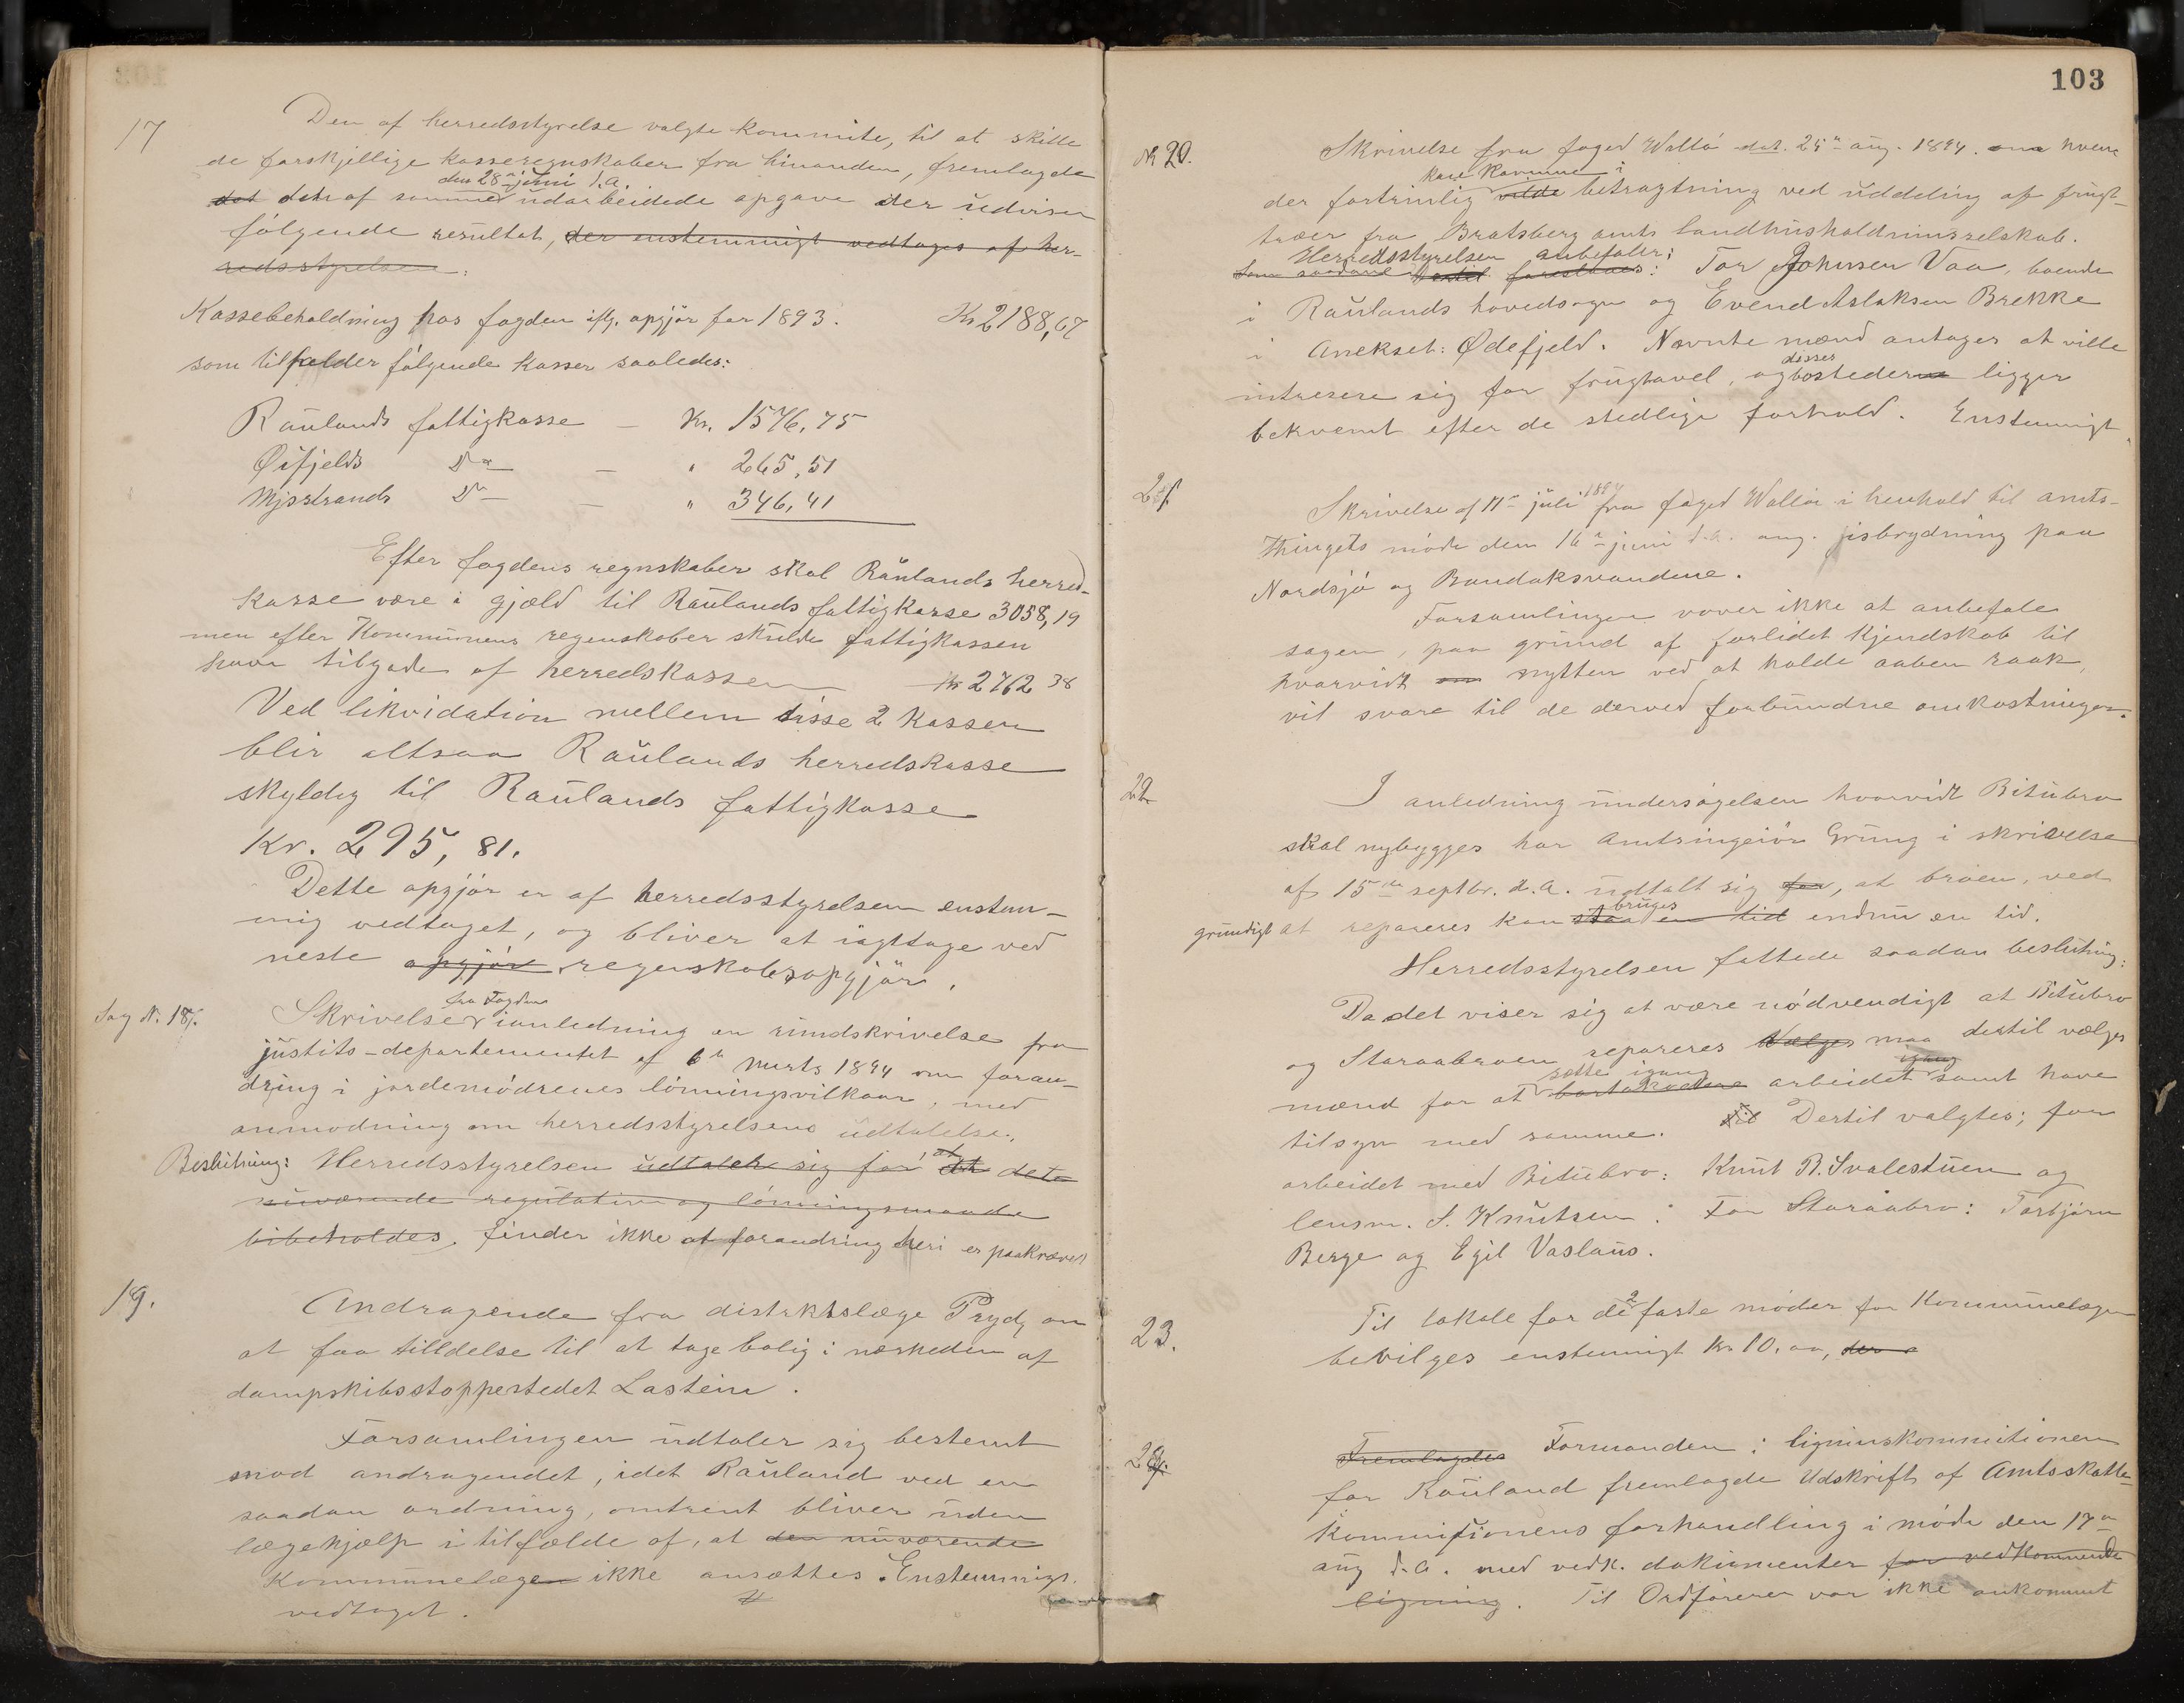 17 Den af herredsstyrelse valgte kommite, til at skille
de forskjellige kasseregnskaber fra hinanden, fremlagde
den 28de juni d.a.
det den af samme udarbeidede opgave der udviser
følgende resultat, der enstemmigt vedtages af her-
redsstyrelsen:
Kassebeholdning hos fogden iflg. opgjör for 1893. Kr 2188,67
som tilfalder følgende Kasser saaledes:
Raulands fattigkasse — Kr. 1576,75
Øifjelds Do — " 265,51
Mjösstrands Do — " 346,41
Efter fogdens regnskaber skal Raulands herred-
kasse være i gjæld til Raulands fattigkasse 3058,19
men efter Kommunens regenskaber skulde fattigkassen
have tilgode af herredskassen Kr 2762 38
Ved likvidation mellem disse 2 Kasser
blir altsaa Raulands herredskasse
skyldig til Raulands fattigkasse
Kr. 295, 81.
Dette opgjör er af herredsstyrelsen enstem-
mig vedtaget, og bliver at iagttage ved
neste opgjör regenskabsopgjör.
fra Fogden
Sag N. 18. Skrivelse i anledning en rundskrivelse fra
justits-departementet af 6te Marts 1894 om foran-
dring i jordemödrenes lönningsvilkaar, med
anmodning om herredsstyrelsens udtalelse.
Beslutning: Herredsstyrelsen udtaler sig for at det
nuværende regulativ og lönningsmaade
bibeholdes. finder ikke at forandring heri er paakrævet
19. Andragende fra distriktslæge Prydz om
at faa tilldelse til at tage bolig i nærheden af
dampskibsstoppestedet Lastein.
Forsamlingen udtaler sig bestemt
mod andragendet, idet Rauland ved en
saadan ordning, omtrent bliver uden
lægehjælp i tilfælde af, at den nuværende
Kommunelægen ikke ansættes. Enstemmigt
vedtaget.
103
N 20. Skrivelse fra foged Wallö dat. 25de aug. 1894. om hvem
kan komme i
der fortrinlig vilde betragtning ved uddeling af frugt-
træer fra Bratsberg amts landhusholdningsselskab.
Herredsstyrelsen anbefaler:
Som saadane foreslaaes: Tor Johnsen Vaa, boende
i Raulands hovedsogn og Evend Aslaksen Brekke
i Anekset: Ødefjeld. Nævnte mænd antages at ville
disses
intresere sig for frugtavel, og bosteder ligger
bekvemt efter de stedlige forhold. Enstemmigt.
21. Skrivelse af 11te juli 1894 fra foged Wallö i henhold til amts-
thingets möde den 16de juni d.a. ang. isbrydning paa
Nordsjö og Bandaksvandene.
Forsamlingen vover ikke at anbefale
sagen, paa grund af forlidet Kjendskab til
hvorvidt om nytten ved at holde aaben raak,
vil svare til de derved forbundne omkostninger.
22 I anledning undersögelsen hvorvidt Bitubro
skal nybygges har Amtsingeiör Grung i skrivelse
af 15de septbr. d.a. udtalt sig for, at broen, ved
bruges
grundigt at repareres kan staa en tid endnu en tid.
Herredsstyrelsen fattede saadan beslutning:
Da det viser sig at være nödvendigt at Bitubro
og Staraabroen repareres vælges maa dertil vælges
sætte igang igang
mænd for at arbeidet samt have
tilsyn med samme. Til Dertil valgtes; for
arbeidet med Bitubro: Knut B. Svalestuen og
lensm. S. Knutsen. For Staraabro: Torbjörn
Berge og Egil Vaslaus.
23. Til lokale for de 2 faste möder for Kommunelægen
bevilges enstemmigt Kr 10.00, der
24. Fremlagdes Formanden i ligninskommitionen
for Rauland fremlagde Udskrift af Amtsskatte-
Kommitionens forhandling i möde den 17de
aug d.a. med vedk. dokumenter for vedkommende
ligning. Til Ordföreren var ikke ankommet